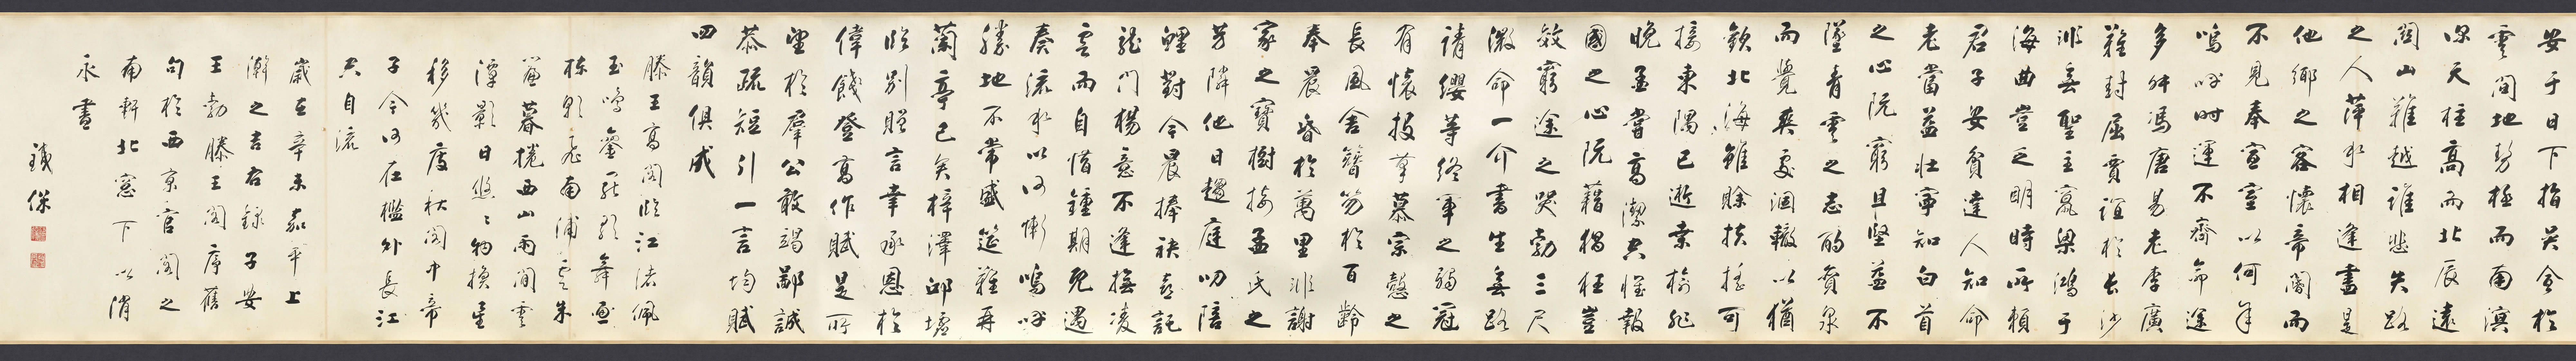 安于日下指吳會於
雲間地勢極而南溟
深天柱高而北辰遠
關山難越誰悲失路
之人萍水相逢盡是
他鄉之客懷帝閽而
不見奉宣室以何年
嗚呼時運不齊命途
多舛馮唐易老李廣
難封屈賈誼於長沙
非無聖主竄梁鴻于
海曲豈乏明時所賴
君子安貧達人知命
老當益壯寧知白首
之心阨窮且堅益不
墜青雲之志酌貪泉
而覺爽處涸轍以猶
歡北海雖賒扶搖可
接東隅已逝桑榆非
晚孟嘗高潔空懷報
國之心阮藉猖狂豈
效窮途之哭勃三尺
微命一介書生無路
請纓等終軍之弱冠
有懷投筆慕宗愨之
長風舍簪笏於百齡
奉晨昏於萬里非謝
家之寶樹接孟氏之
芳隣他日趨庭叨陪
鯉對今晨捧袂喜託
龍門楊意不逢撫凌
雲而自惜鍾期既遇
奏流水以何慚嗚呼
勝地不常盛筵難再
蘭亭已矣梓澤邱墟
臨別贈言幸承恩於
偉餞登高作賦是所
望於羣公敢竭鄙誠
恭疏短引一言均賦
四韻俱成
滕王高閣臨江渚佩
玉鳴鑾罷歌舞畫
棟朝飛南浦雲朱
簾暮捲西山雨閒雲
潭影日悠〻物換星
移幾度秋閣中帝
子今何在檻外長江
空自流
歲在辛未嘉平上
澣之吉右錄子安
王勃滕王閣序舊
句於西京官閣之
南軒北窓下以消
永晝
鐵保